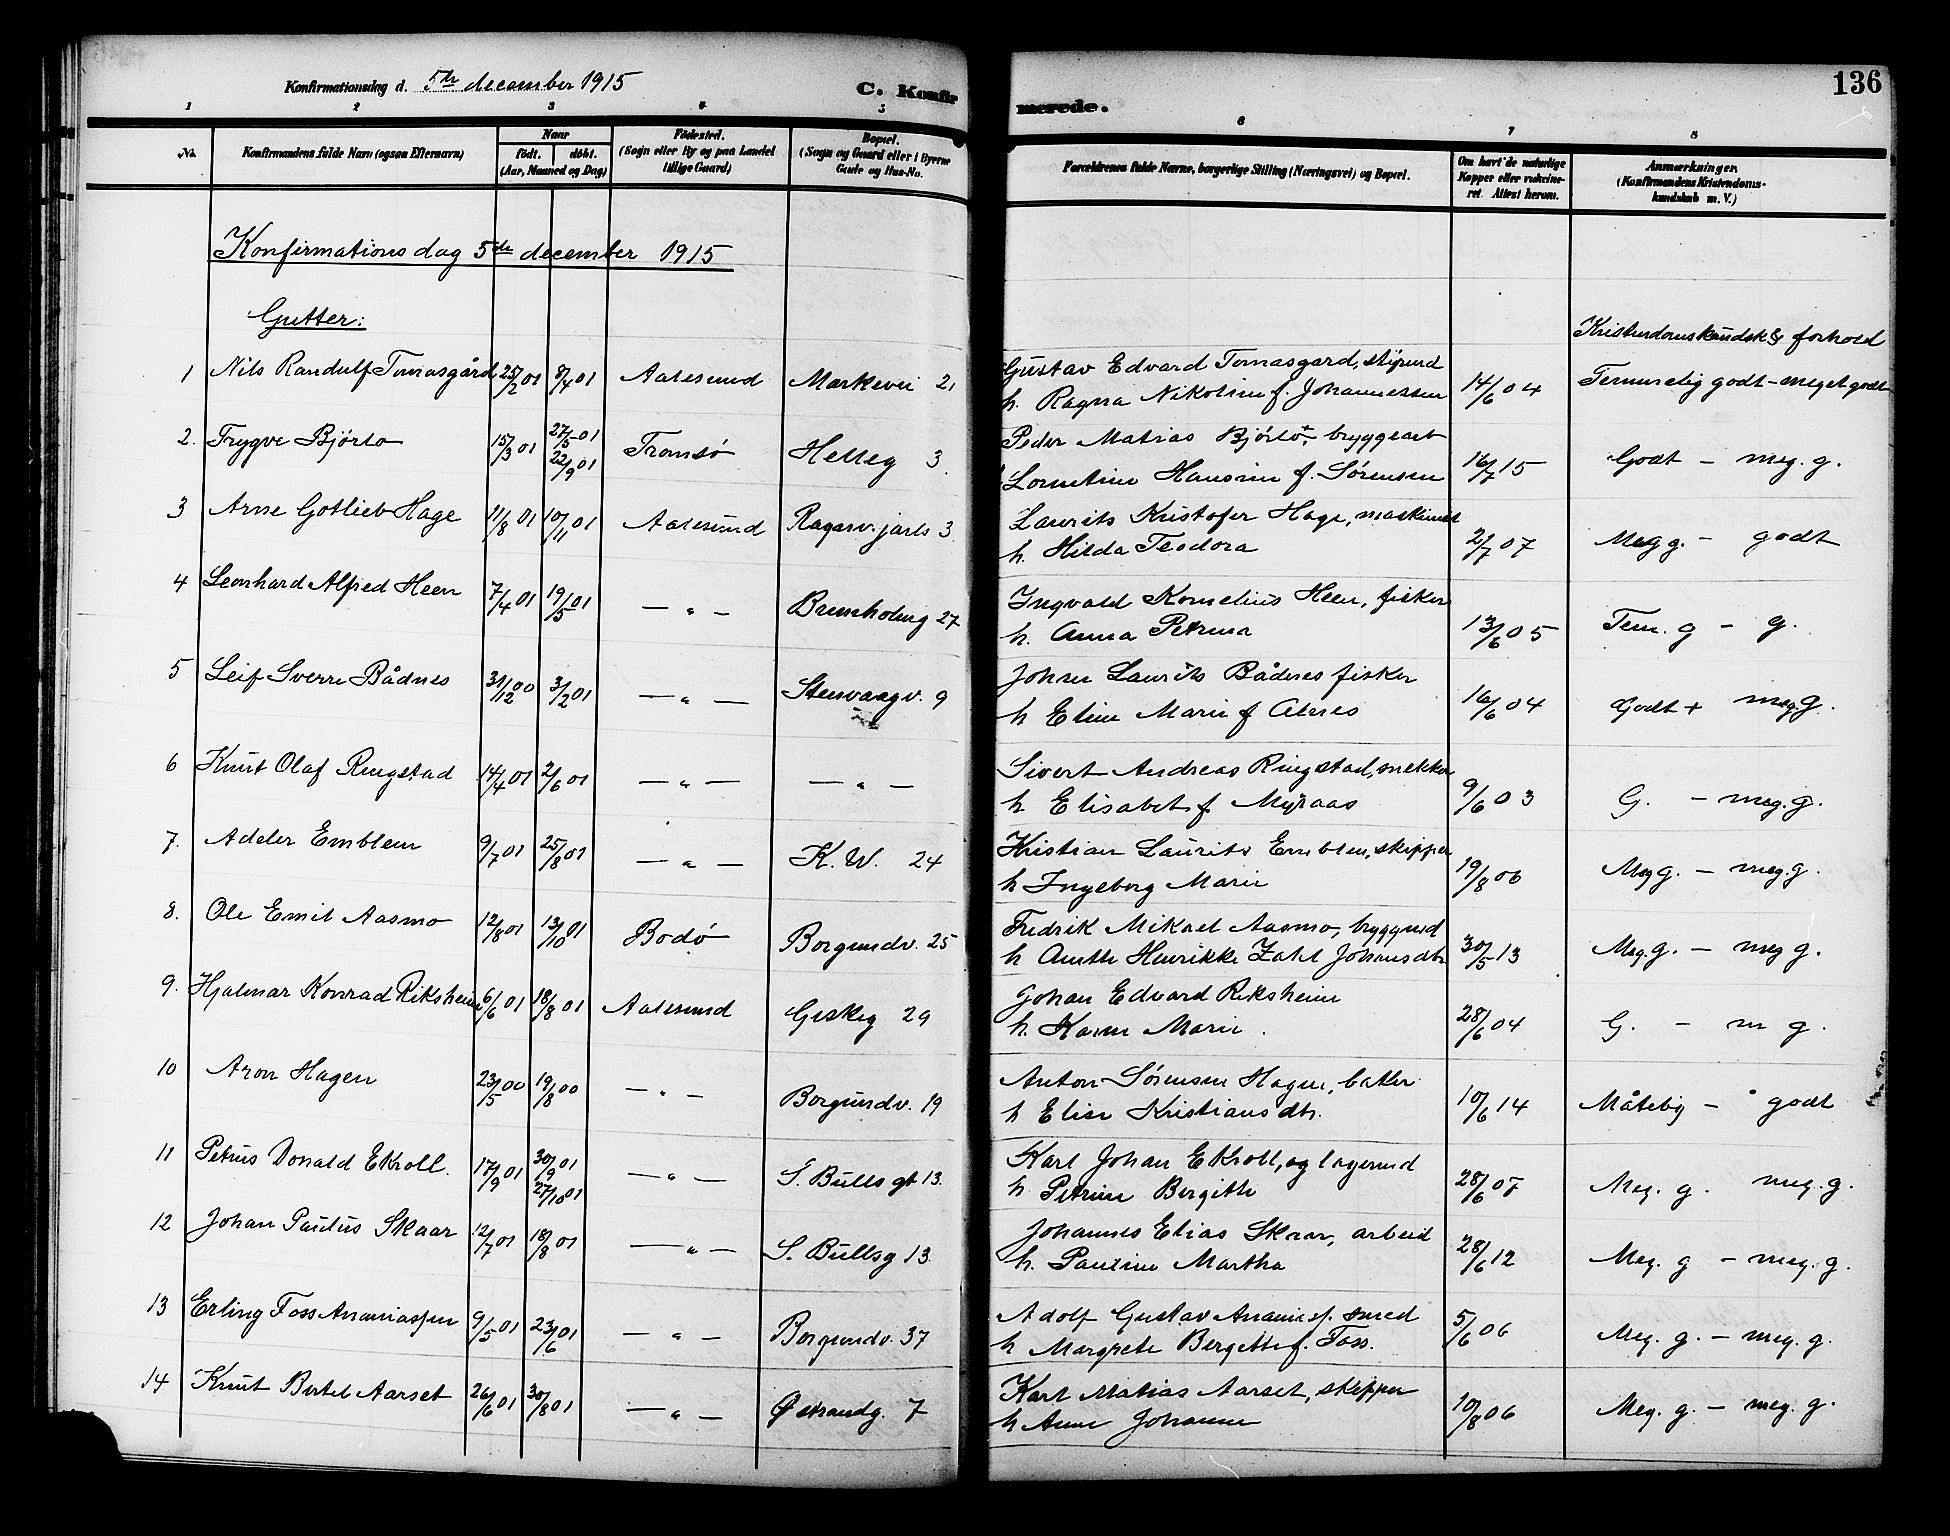 136
Konfirmationsdag d. 5te december 1915
C. Konfirmerede.
1 2 3 4 5 6 7 8
No. Konfirmandens fulde Navn (ogsaa Efternavn) Naar født. døbt. (Aar, Maaned og Dag) Fødested. (Sogn eller By og paa Landet tillige Gaard) Bopæl. (Sogn og Gaard eller i Byerne Gade og Hus-No. Forældrenes fulde Navne, borgerlige Stilling (Næringsvei) og Bopæl. Om havt de naturlige Kopper eller vakcineret. Attest herom. Anmærkninger. (Konfirmandens Kristendomskundskab m. V.)
Konfirmationsdag 5te december 1915
Gutter:
Kristendomskundsk & forhold
1 Nils Randulf Tomasgård 25/2 01 8/4 01 Aalesund Markevei 21 Gustav Edvard Tomasgard, styrmd 14/6 04 Temmelig godt - meget godt
h. Ragna Nikoline f. Johannessen
2. Trygve Bjørlo 15/3 01 27/5 01 22/9 01 Tromsø Helleg 3. Peder Matias Bjørlo, bryggearb 16/7 15 Godt - meg. g.
Hansine f. Sørensen
3 Arne Gotlieb Hage 11/8 01 10/11 01 Aalesund Ragnv. jarls 3. Laurits Kristofer Hage, maskinist 2/7 07 Meg g. - godt
h. Hilda Teodora
4 Leonhard Alfred Heen 7/4 01 19/5 01 — " — Brunholmg 27 Ingvald Kornelius Heen, fisker 13/6 05 Tem. g - g.
h. Anna Petrina
5 Leif Sverre Bådnes 31/12 00 3/2 01 — " — Stenvaagv. 9 Johan Laurits Bådnes fisker 16/6 04 Godt + meg. g.
h Eline Marie f Alnes
6 Knut Olaf Ringstad 14/4 01 2/6 01 — " — — " — Sivert Andreas Ringstad, snekker 9/6 03 G. - meg. g.
h. Elisabet f. Myraas
7. Adeler Emblem 9/7 01 25/8 01 — " — K. W. 24 Kristian Laurits Emblem, skipper 19/8 06 Meg g. - meg. g.
h Ingeborg Marie
8. Ole Emil Aasmo 12/8 01 13/10 01 Bodø Borgundv. 25 Fredrik Mikael Aasmo, bryggmd 30/5 13 Meg. g. - meg g.
h Anette Henrikke Zakl Johansdtr
9. Hjalmar Konrad Riksheim 6/6 01 18/8 01 Aalesund Giskeg 29 Johan Edvard Riksheim 28/6 04 G. - m g.
h. Karen Marie.
10 Aron Hagen 23/5 00 19/8 00 — " — Borgundv. 19 Anton Sørensen Hagen, baker 10/6 14 Måtelig - godt
h Elise Kristiansdtr.
11 Petrus Donald Ekroll. 17/9 01 30/9 01 27/10 01 — " — S. Bullsgt 13. Karl Johan Ekroll, og lagermd 28/6 07 Meg. g. meg. g.
h Petrine Bergithe
12 Johan Paulus Skaar 12/7 01 18/8 01 — " — S. Bullsg 13. Johannes Elias Skaar, arbeid 28/6 12 Meg. g - meg. g.
h. Pauline Martha
13 Erling Foss Ananiassen 9/5 01 23/6 01 — " — Borgundv. 37 Adolf Gustav Ananiass. smed 5/6 06 Meg. g. - meg. g.
h Margrete Bergette f. Foss.
14 Knut Bertel Aarset 26/6 01 30/8 01 — " — Østrandg. 7 Karl Matias Aarset, skipper 10/8 06 Meg. g. - meg. g.
h Anne Johanne